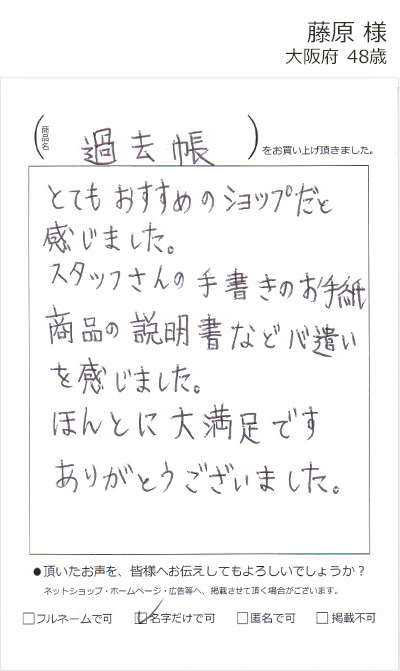 藤原 様
大阪府 48歳
(商品名 過去帳 )をお買い上げ頂きました。
とても おすすめ の ショップだと
感じました。
スタッフさんの 手書きのお手紙
商品の 説明書 など 心遣い
を 感じました。
ほんとに 大満足 です
ありがとうございました。
●頂いたお声を、皆様へお伝えしてもよろしいでしょうか？
ネットショップ・ホームページ・広告等へ、掲載させて頂く場合がございます。
□フルネームで可 ☑名字だけで可 □匿名で可 □掲載不可